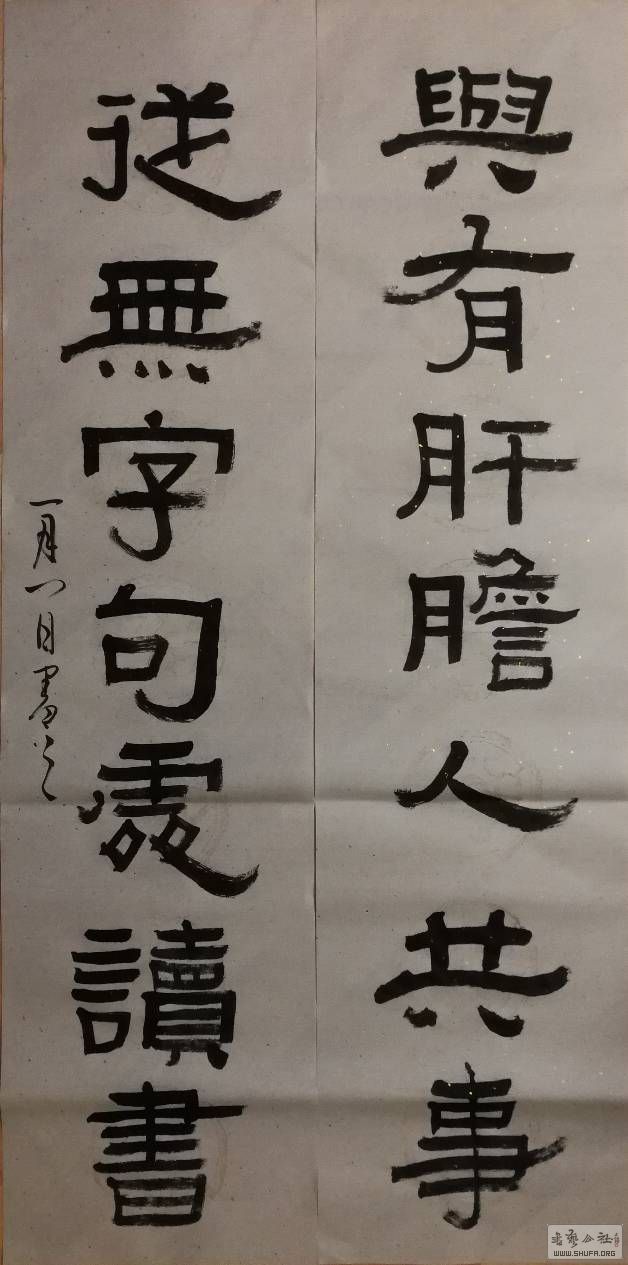 與有肝膽人共事
從無字句處讀書
一月一日書之
書藝公社
WWW.SHUFA.ORG